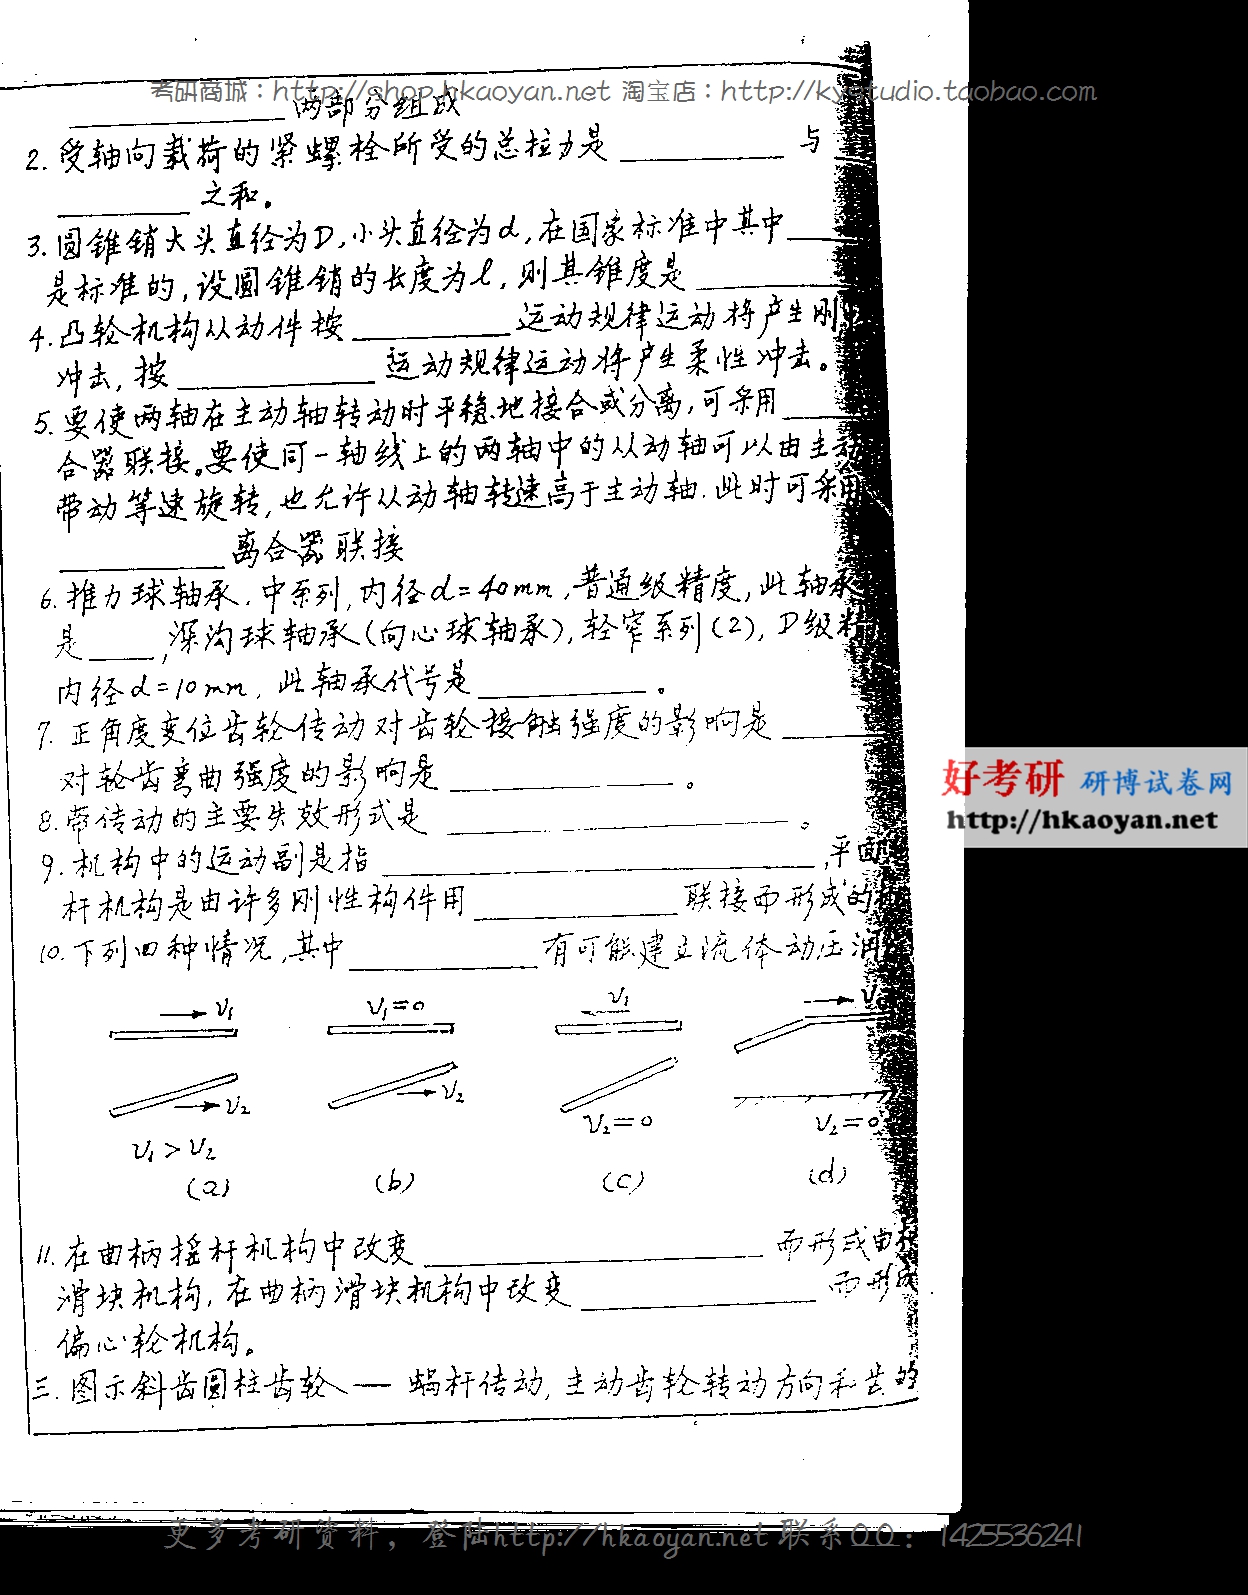 考研商城：http://shop.hkaoyan.net 淘宝店：http://kystudio.taobao.com
两部分组成
2. 受轴向载荷的紧螺栓所受的总拉力是________与
________之和。
3. 圆锥销大头直径为D, 小头直径为d, 在国家标准中其中____
是标准的, 设圆锥销的长度为l, 则其锥度是________
4. 凸轮机构从动件按________运动规律运动将产生刚
冲击, 按________运动规律运动将产生柔性冲击。
5. 要使两轴在主动轴转动时平稳地接合或分离, 可采用____
合器联接。要使同一轴线上的两轴中的从动轴可以由主动
带动等速旋转, 也允许从动轴转速高于主动轴. 此时可采用
________离合器联接
6. 推力球轴承. 中系列, 内径d=40mm, 普通级精度, 此轴承
是____, 深沟球轴承(向心球轴承), 轻窄系列(2), D级精
内径d=10mm, 此轴承代号是________。
7. 正角度变位齿轮传动对齿轮接触强度的影响是____
对轮齿弯曲强度的影响是________。
8. 带传动的主要失效形式是________。
9. 机构中的运动副是指________, 平面
杆机构是由许多刚性构件用________联接而形成的机
10. 下列四种情况, 其中________有可能建立流体动压润
V₁ V₁=0 V₁ V
V₂ V₂ V₂=0 V₂=0
V₁>V₂
(a) (b) (c) (d)
11. 在曲柄摇杆机构中改变________而形成曲柄
滑块机构, 在曲柄滑块机构中改变________而形成
偏心轮机构。
三. 图示斜齿圆柱齿轮 — 蜗杆传动, 主动齿轮转动方向和齿的
好考研 研博试卷网
http://hkaoyan.net
更多考研资料，登陆http://hkaoyan.net 联系QQ：1425536241